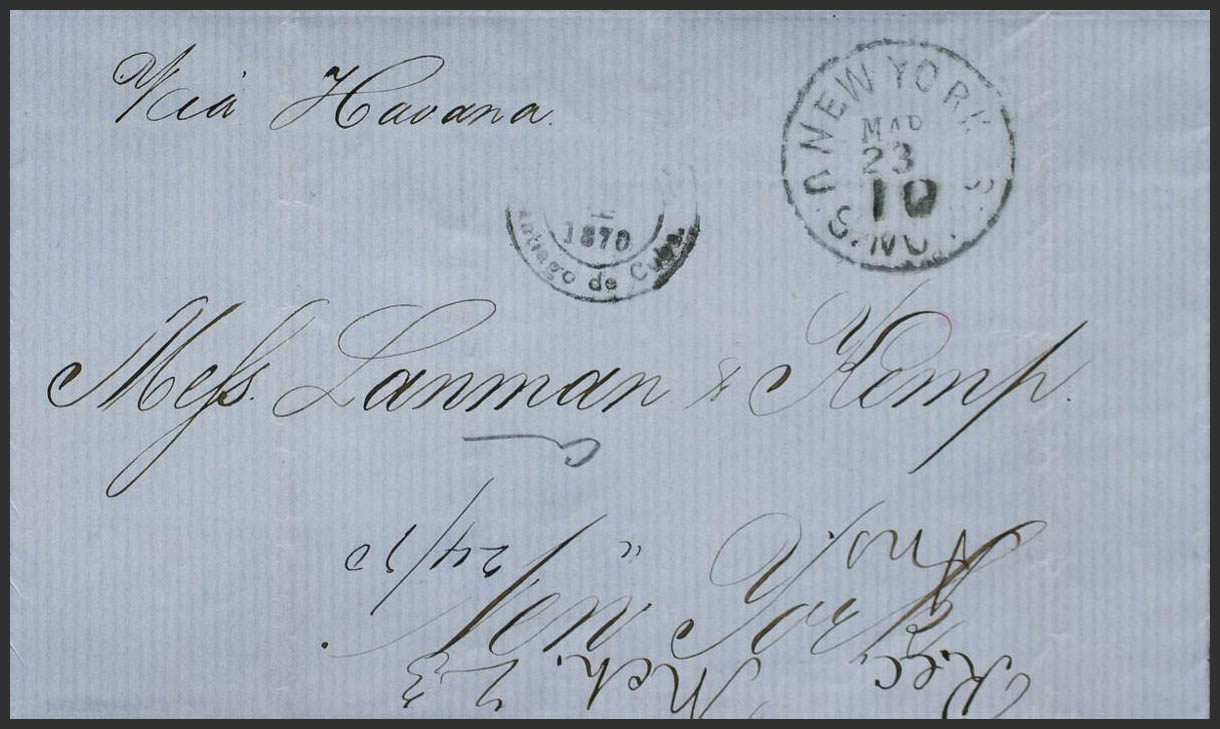 Via Havana.
NEW YORK
MAR
23
10
1870
Santiago de Cuba.
Mess. Lanman & Kemp.
New York.
Rec. Mch. 23
Ans. " 24/70